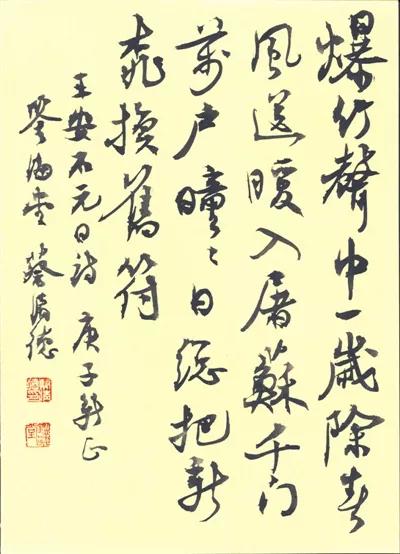 爆竹聲中一歲除春
風送暖入屠蘇千門
萬户曈々日總把新
桃換舊符
王安石元日詩 庚子新正
海堂 蔡清德